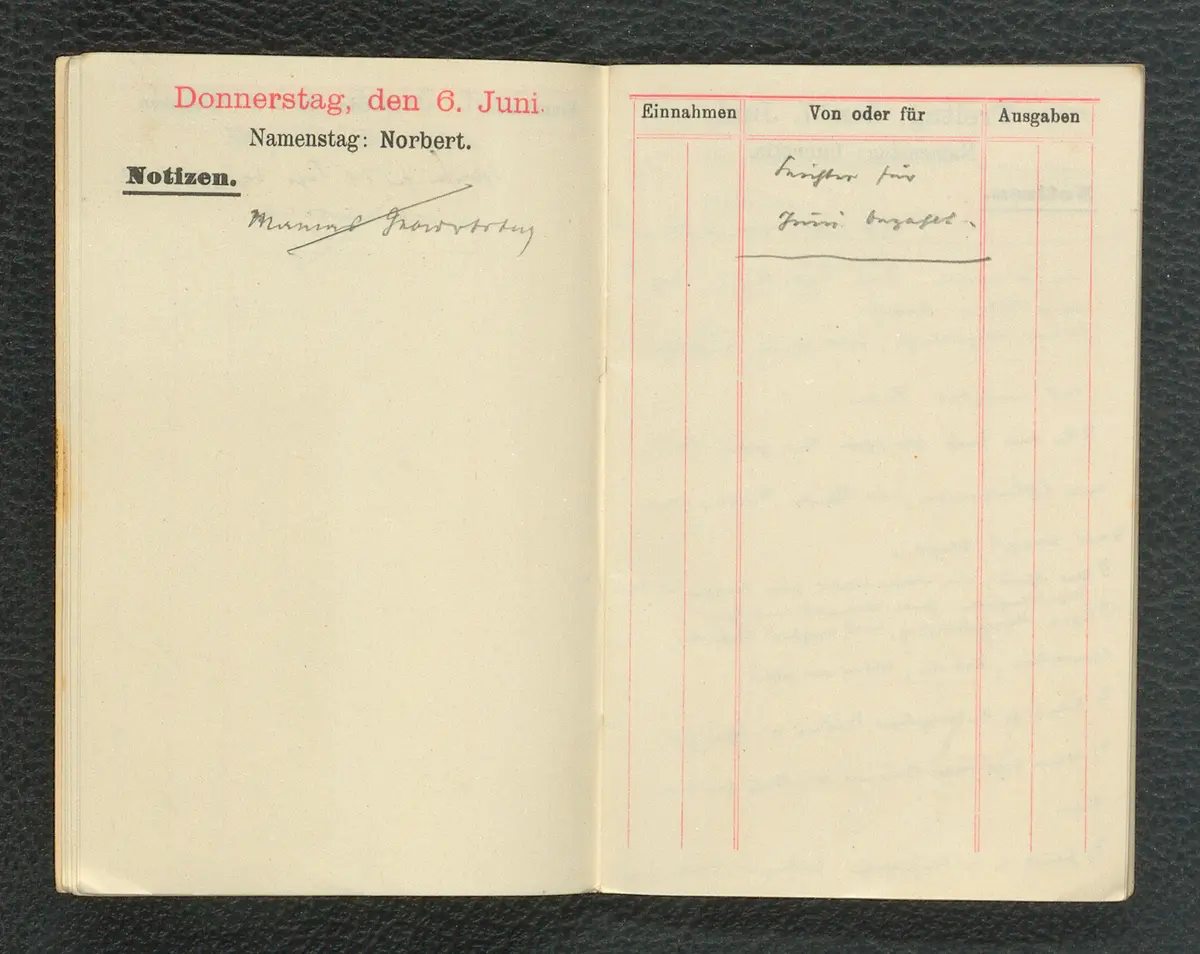 Donnerstag, den 6. Juni.
Namenstag: Norbert.
Notizen.
Mamas Geburtstag
Einnahmen
Von oder für
Ausgaben
für
Juni bezahlt.